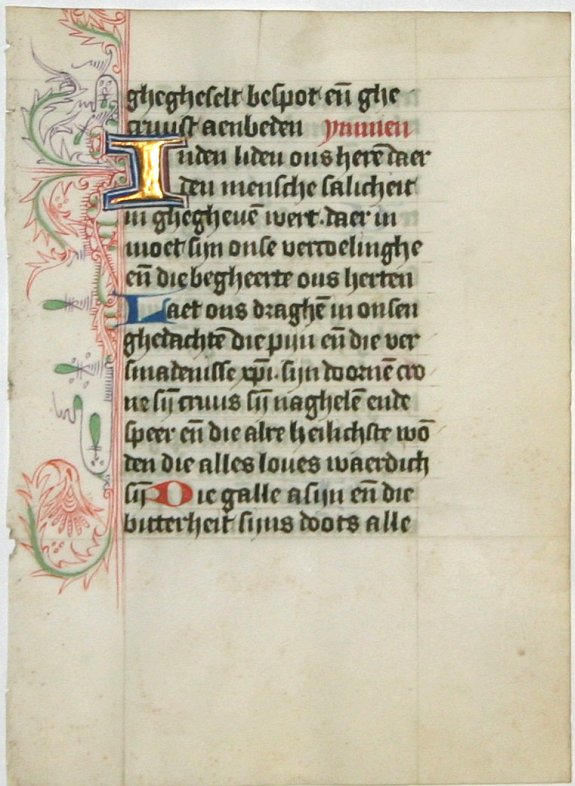 ghegheselt bespot eñ ghe
cruust aenbeden ymmen
Inden liden ons herē daer
den mensche salicheit
in ghegheuē wert. daer in
moet sijn onse vertoelinghe
eñ die begheerte ons herten
Laet ons draghē in onsen
ghedachtē die pijn eñ die ver
smadenisse xp̄i. sijn doornē cro
ne sijn̄ cruus sijn̄ naghelē ende
speer eñ die alre heilichste wō
den die alles loues waerdich
sijn̄ Die galle asijn eñ die
bitterheit sijns doots alle